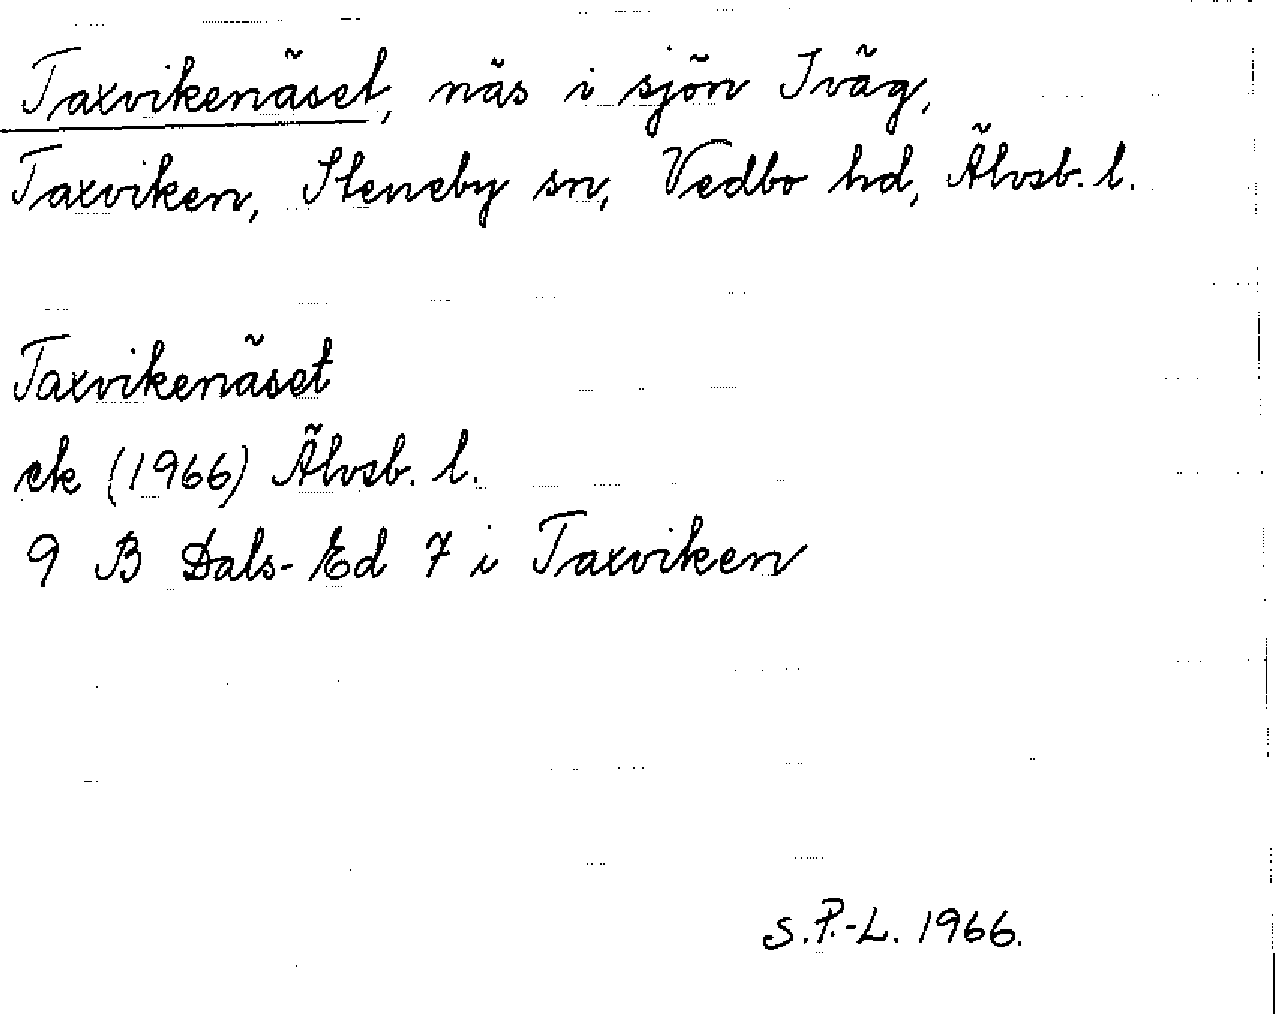 Taxvikenäset, näs i sjön Iväg,
Taxviken, Steneby sn, Vedbo hd, Älvsb. l.
Taxvikenäset
ek (1966) Älvsb. l.
9 B Dals-Ed 7 i Taxviken
S.P.-L. 1966.